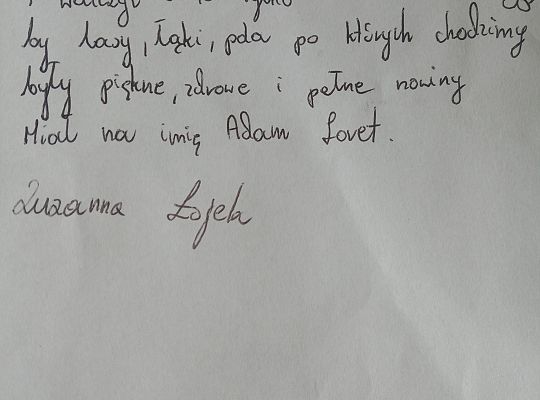 by lasy, łąki, pola po których chodzimy
były piękne, zdrowe i pełne nowiny
Miał na imię Adam Loret.
Zuzanna Łojek